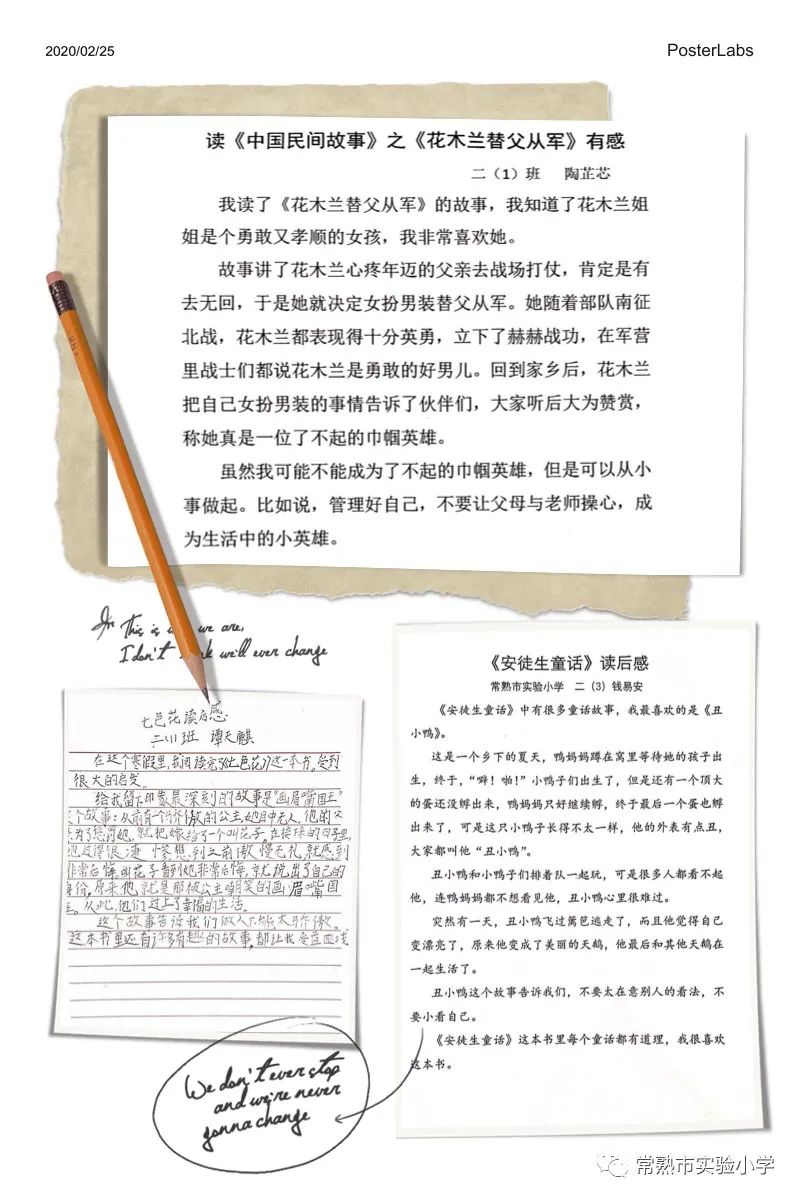 2020/02/25
PosterLabs
读《中国民间故事》之《花木兰替父从军》有感
二（1）班 陶芷芯
我读了《花木兰替父从军》的故事，我知道了花木兰姐
姐是个勇敢又孝顺的女孩，我非常喜欢她。
故事讲了花木兰心疼年迈的父亲去战场打仗，肯定是有
去无回，于是她就决定女扮男装替父从军。她随着部队南征
北战，花木兰都表现得十分英勇，立下了赫赫战功，在军营
里战士们都说花木兰是勇敢的好男儿。回到家乡后，花木兰
把自己女扮男装的事情告诉了伙伴们，大家听后大为赞赏，
称她真是一位了不起的巾帼英雄。
虽然我可能不能成为了不起的巾帼英雄，但是可以从小
事做起。比如说，管理好自己，不要让父母与老师操心，成
为生活中的小英雄。
This is we are,
I don't we'll ever change
七色花读后感
二（1）班 谭天麒
在这个寒假里，我阅读完《七色花》这一本书。受到
很大的启发。
给我留下印象最深刻的故事是"画眉嘴国王"
个故事：从前有个骄傲的公主，她目中无人，他的父
为了惩罚她，就把嫁给了一个叫花子。在接体的日子里，
过得很凄惨，想到之前傲慢无礼，就感到
非常后悔。叫花子看到她非常后悔，就说出了自己的
身份，原来他就是那被公主嘲笑的画眉嘴国
王。从此，他们过上了幸福的生活。
这个故事告诉我们做人不能太骄傲。
这本书里还有许多有趣的故事，都让我受益匪浅
《安徒生童话》读后感
常熟市实验小学 二（3）钱易安
《安徒生童话》中有很多童话故事，我最喜欢的是《丑
小鸭》。
这是一个乡下的夏天，鸭妈妈蹲在窝里等待她的孩子出
生，终于，“噼！啪！”小鸭子们出生了，但是还有一个顶大
的蛋还没孵出来，鸭妈妈只好继续孵，终于最后一个蛋也孵
出来了，可是这只小鸭子长得不太一样，他的外表有点丑，
大家都叫他“丑小鸭”。
丑小鸭和小鸭子们排着队一起玩，可是很多人都看不起
他，连鸭妈妈都不想看见他，丑小鸭心里很难过。
突然有一天，丑小鸭飞过篱笆逃走了，而且他觉得自己
变漂亮了，原来他变成了美丽的天鹅，他最后和其他天鹅在
一起生活了。
丑小鸭这个故事告诉我们，不要太在意别人的看法，不
要小看自己。
《安徒生童话》这本书里每个童话都有道理，我很喜欢
这本书。
We don't ever stop
and we're never
gonna change
常熟市实验小学